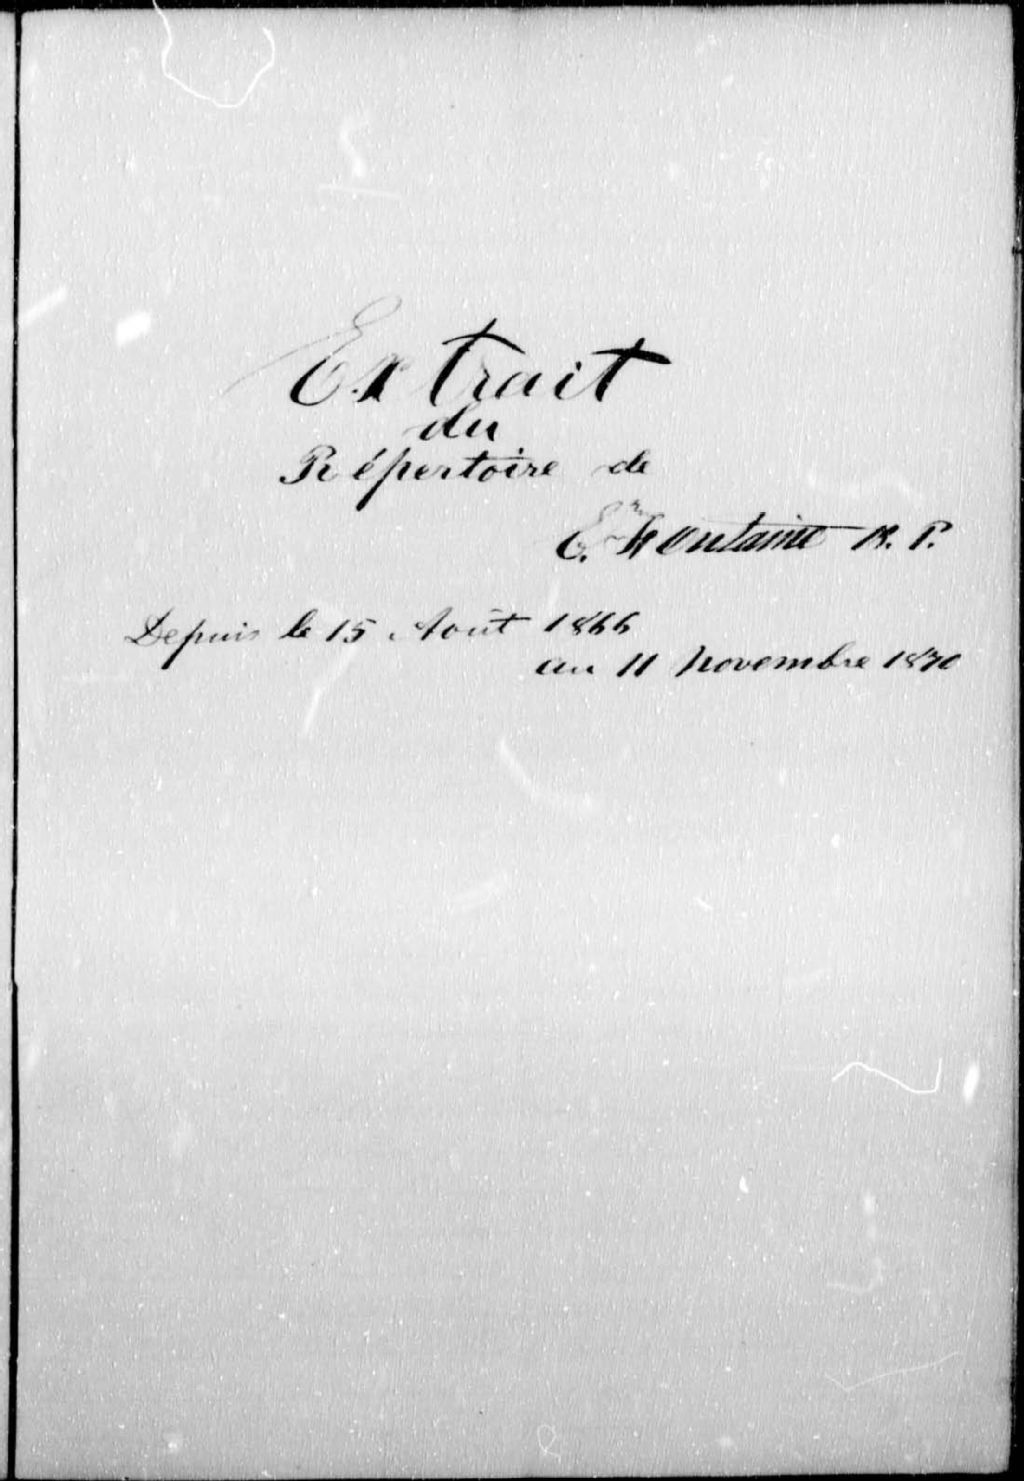 Extrait
du
Répertoire de
E. Fontaine N. P.
Depuis le 15 Août 1866
au 11 Novembre 1870